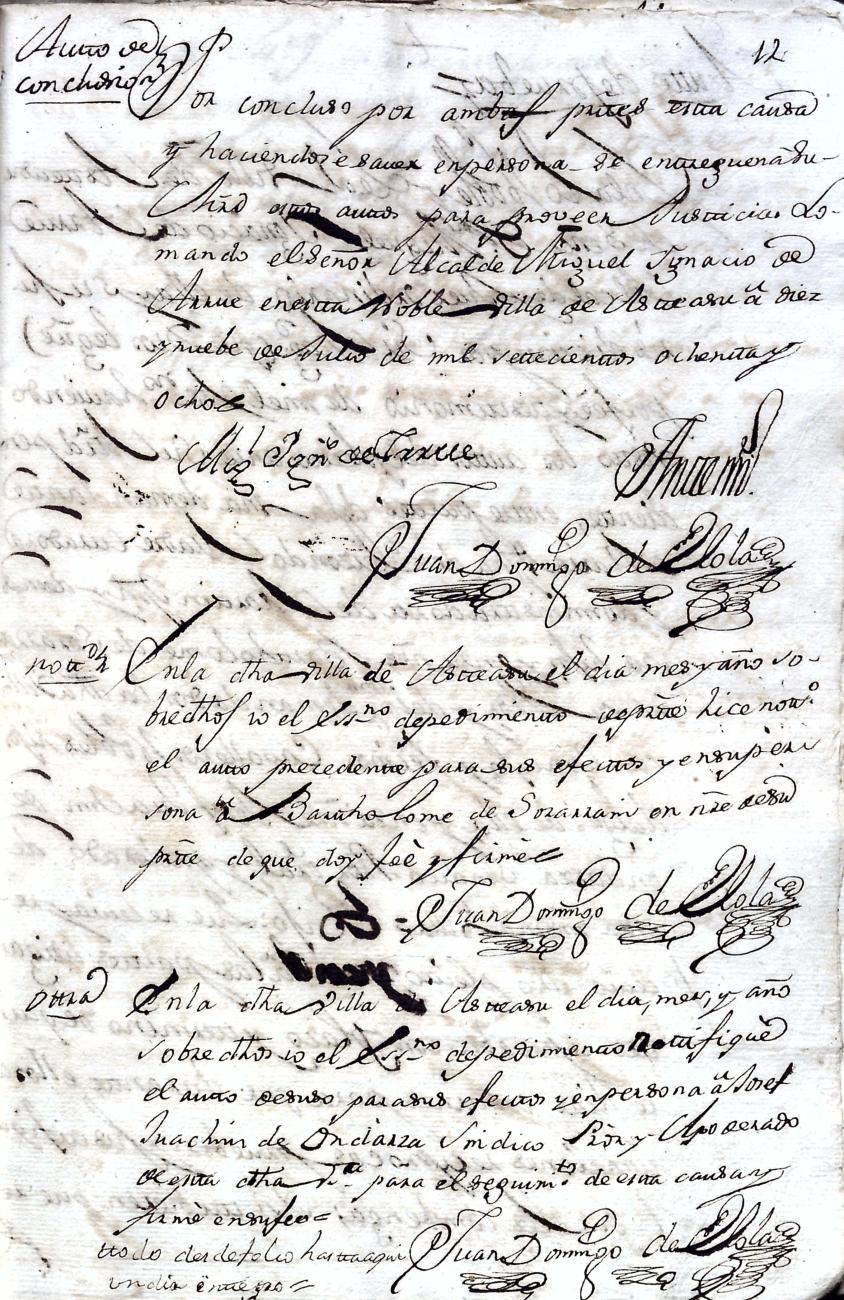 12
Autto de
conclusion
Por concluso por ambas prttes estta causa
y haciendose saver en persona se entreguen a su
mrd estos auttos para proveer Justticia. Lo
mando el Señor Alcalde Miguel Ignacio de
Arrue en estta Noble Villa de Astteasu â diez
y nuebe de Julio de mil settecienttos ochentta y
ocho=
Migl Ignº de Arrue
Antte mi
Juan Domingo de Olola
nott.on
En la dha villa de Astteasu el dia mes y año so-
bredhos io el Essno de pedimientto de prtte hice nottº
el autto precedentte para sus efecttos y en su per
sona â Bartholome de Sorarrain en nre de su
prtte de que doy feè y firmè=
Juan Domingo de Olola
ôttra
En la dha Villa de Astteasu el dia, mes, y año
sobredhos io el Essno de pedimientto nottifiquè
el autto de suso para sus efecttos y en persona â Josef
Juachin de Ondarza Sindico Prōr y Apoderado
de estta dha Vª para el seguimtº de estta causa y
firmè en su feè=
ttodo desde folio hastta aqui
un dia êntero=
Juan Domingo de Olola